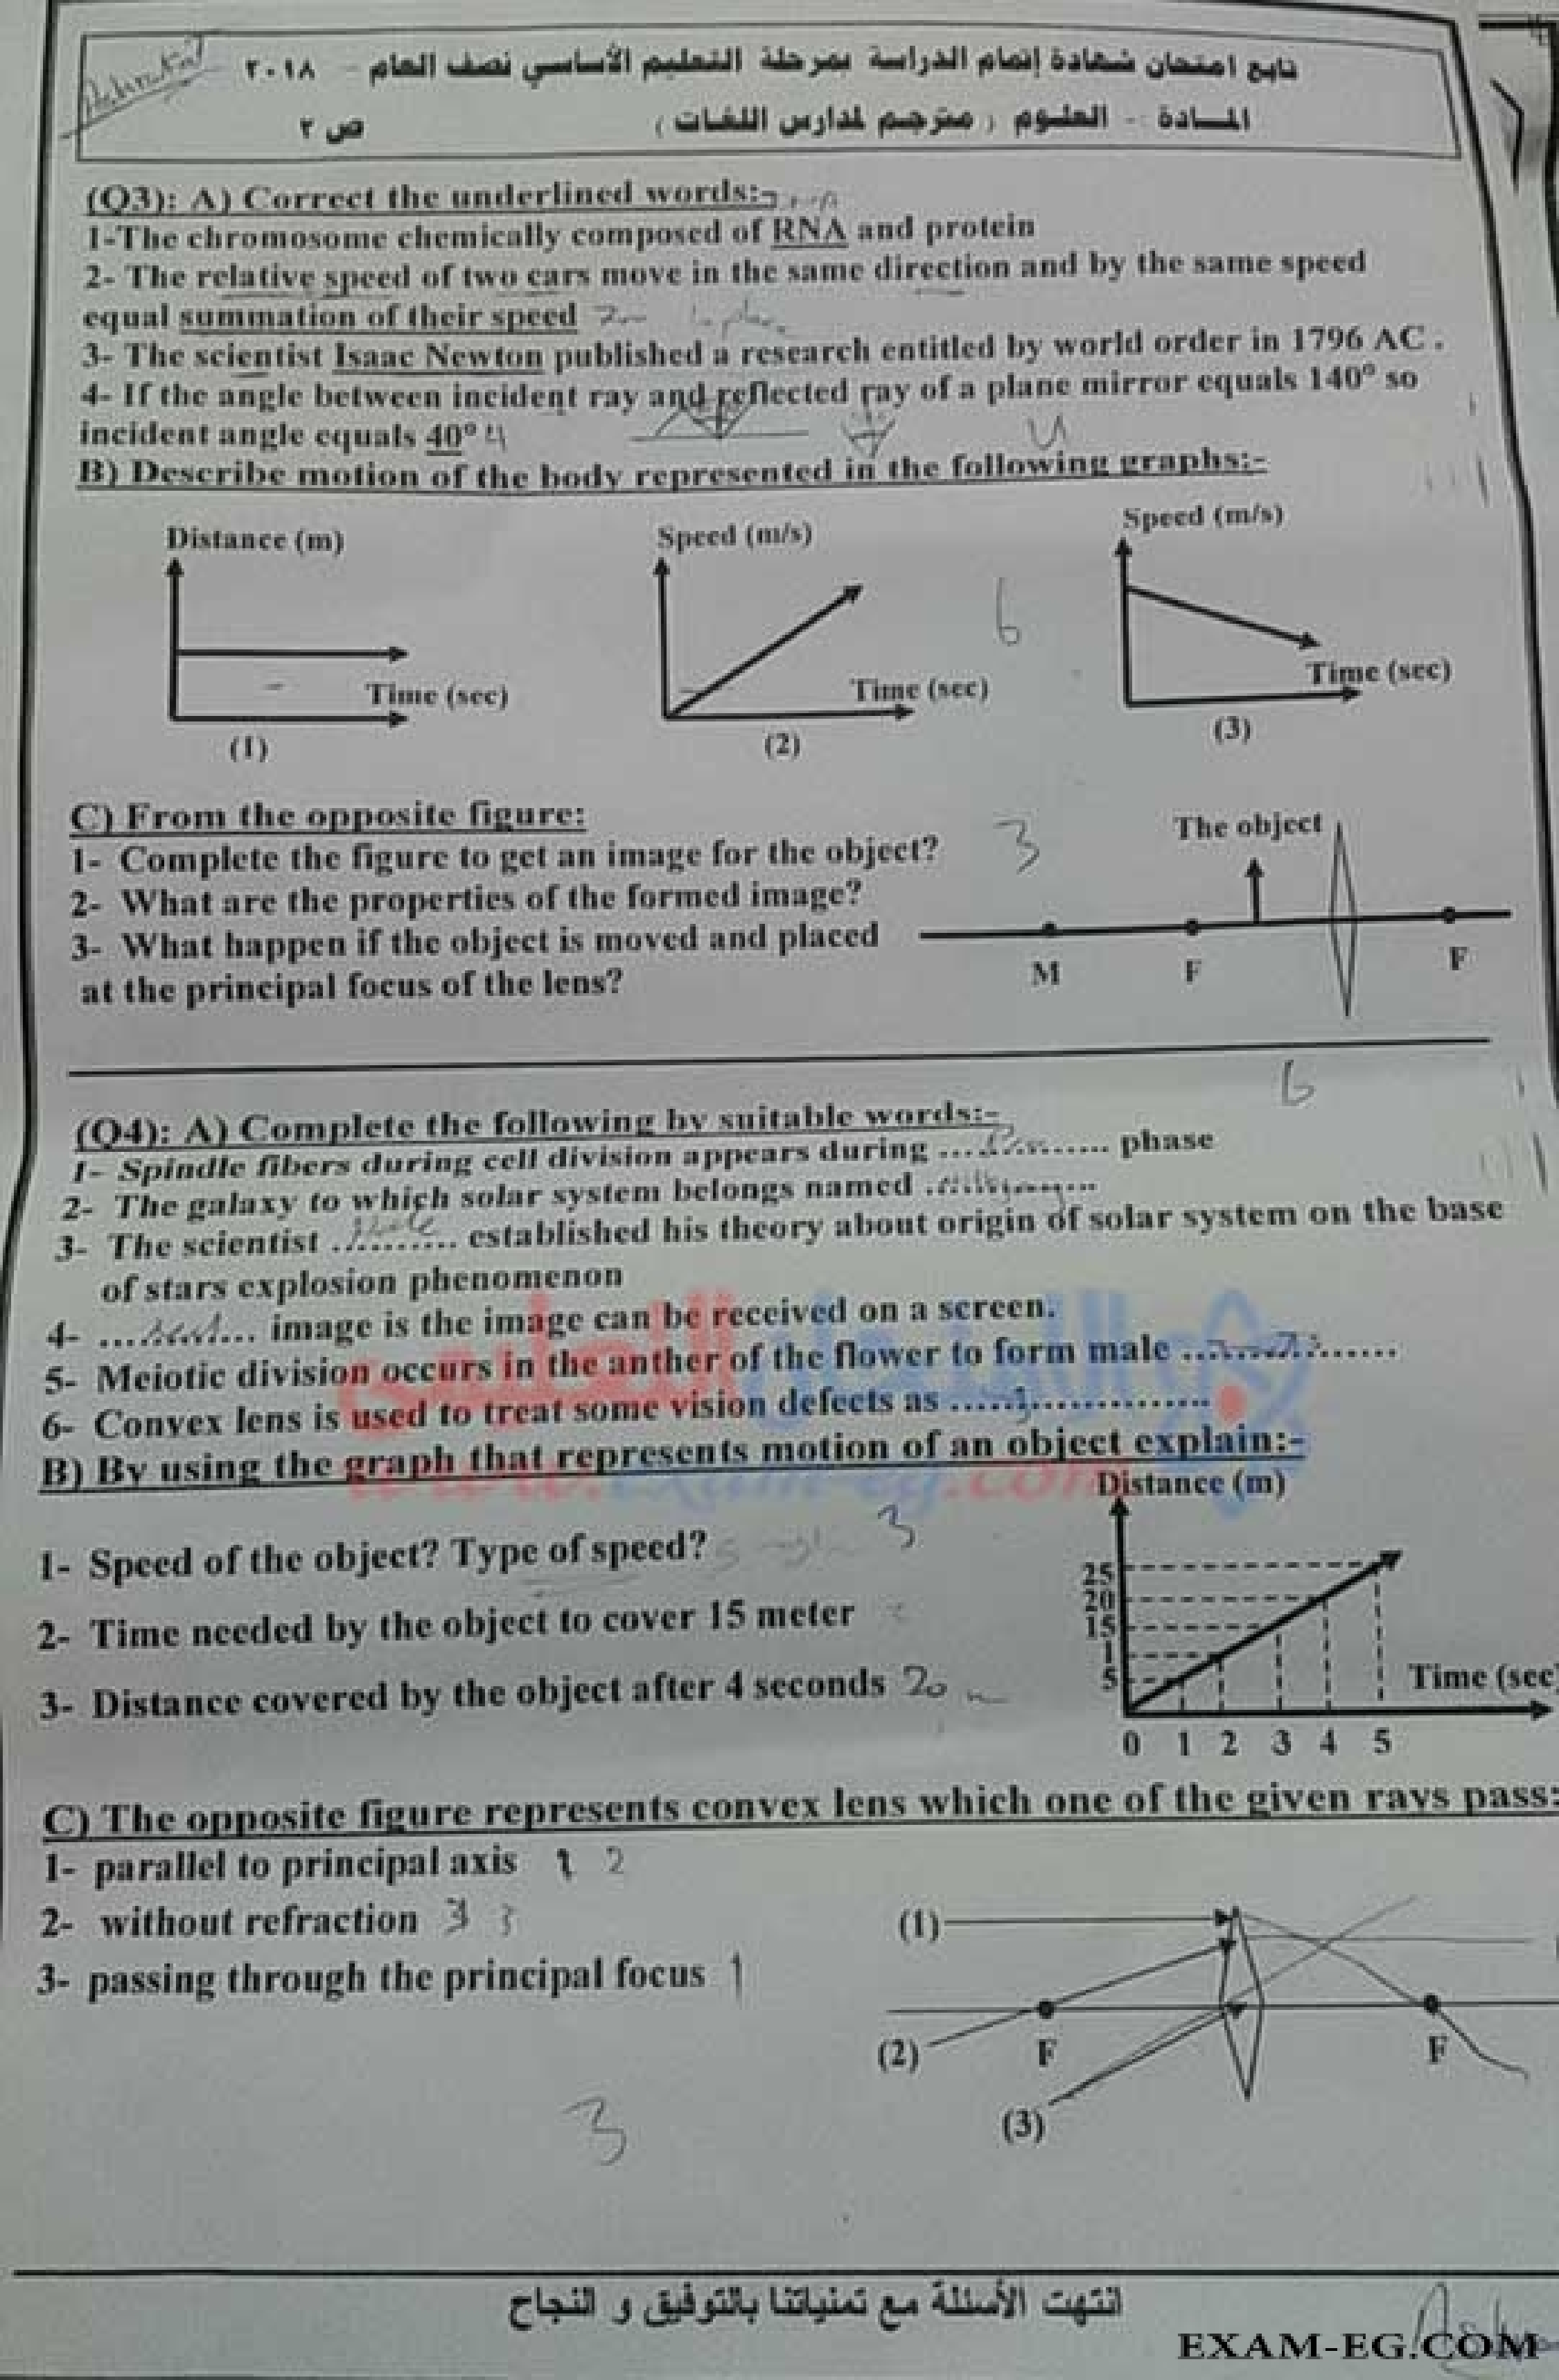 تابع امتحان شهادة إتمام الدراسة بمرحلة التعليم الأساسي نصف العام - ٢٠١٨
المــادة - العلــوم ( مترجم لمدارس اللغات ) ص ٢
(Q3): A) Correct the underlined words:-
1-The chromosome chemically composed of RNA and protein
2- The relative speed of two cars move in the same direction and by the same speed
equal summation of their speed
3- The scientist Isaac Newton published a research entitled by world order in 1796 AC .
4- If the angle between incident ray and reflected ray of a plane mirror equals 140° so
incident angle equals 40°
B) Describe motion of the body represented in the following graphs:-
Distance (m)
Time (sec)
(1)
Speed (m/s)
Time (sec)
(2)
6
Speed (m/s)
Time (sec)
(3)
C) From the opposite figure:
1- Complete the figure to get an image for the object?
2- What are the properties of the formed image?
3- What happen if the object is moved and placed
at the principal focus of the lens?
3
The object
M F F
6
(Q4): A) Complete the following by suitable words:-
1- Spindle fibers during cell division appears during .............. phase
2- The galaxy to which solar system belongs named ..............
3- The scientist ........... established his theory about origin of solar system on the base
of stars explosion phenomenon
4- .............. image is the image can be received on a screen.
5- Meiotic division occurs in the anther of the flower to form male ..................
6- Convex lens is used to treat some vision defects as ......................
B) By using the graph that represents motion of an object explain:-
1- Speed of the object? Type of speed?
3
2- Time needed by the object to cover 15 meter
3- Distance covered by the object after 4 seconds 20
Distance (m)
25
20
15
1
5
Time (sec)
0 1 2 3 4 5
C) The opposite figure represents convex lens which one of the given rays pass:
1- parallel to principal axis 1 2
2- without refraction 3 3
3- passing through the principal focus 1
(1)
(2)
F
F
(3)
3
انتهت الأسئلة مع تمنياتنا بالتوفيق و النجاح
EXAM-EG.COM